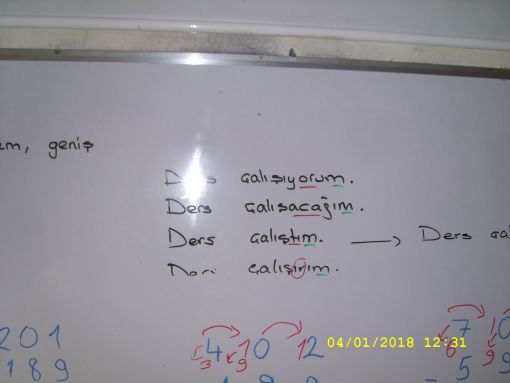 em, geniş
Ders çalışıyorum.
Ders çalışacağım.
Ders çalıştım. → Ders ça
Ders çalışırım.
201
189
4 10 12
3 9
7 10
6 9
5 9
04/01/2018 12:31